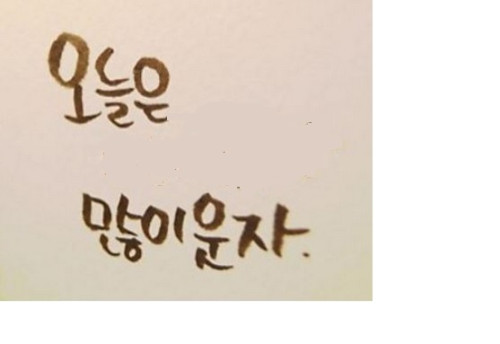 오늘은
많이운자.